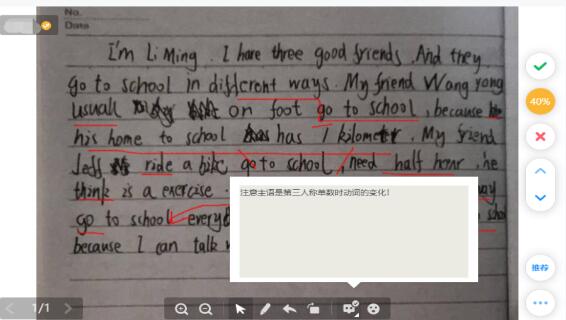 No.
Data
I'm Li Ming. I have three good friends. And they
go to school in different ways. My friend Wang yong
usuall on foot go to school, because
his home to school has 1 kilometr. My friend
Jeff ride a bike go to school, need half hour, he
think is a exercise.
注意主语是第三人称单数时动词的变化!
go to school every
because I can talk
40%
推荐
1/1